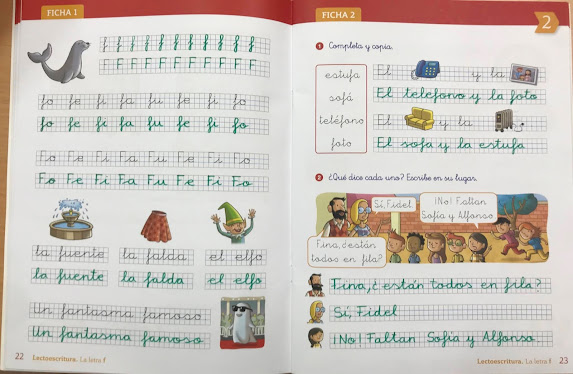 FICHA 1
f f f f f f f f f f f
F F F F F F F F F F
fo fe fi fa fu fe fi fo
fo fe fi fa fu fe fi fo
Fo Fe Fi Fa Fu Fe Fi Fo
Fo Fe Fi Fa Fu Fe Fi Fo
la fuente la falda el elfo
la fuente la falda el elfo
Un fantasma famoso
Un fantasma famoso
22 Lectoescritura. La letra f
FICHA 2
2
1 Completa y copia.
estufa
sofá
teléfono
foto
El y la
El telefono y la foto
El y la
El sofa y la estufa
2 ¿Qué dice cada uno? Escribe en su lugar.
Sí, Fidel
¡No! Faltan
Sofía y Alfonso
Fina, ¿están
todos en fila?
Fina, ¿están todos en fila?
Sí, Fidel
¡No! Faltan Sofía y Alfonso
Lectoescritura. La letra f 23